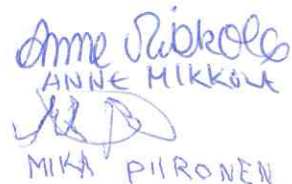 Anne Mikkola
ANNE MIKKOLA
MIKA PIIRONEN